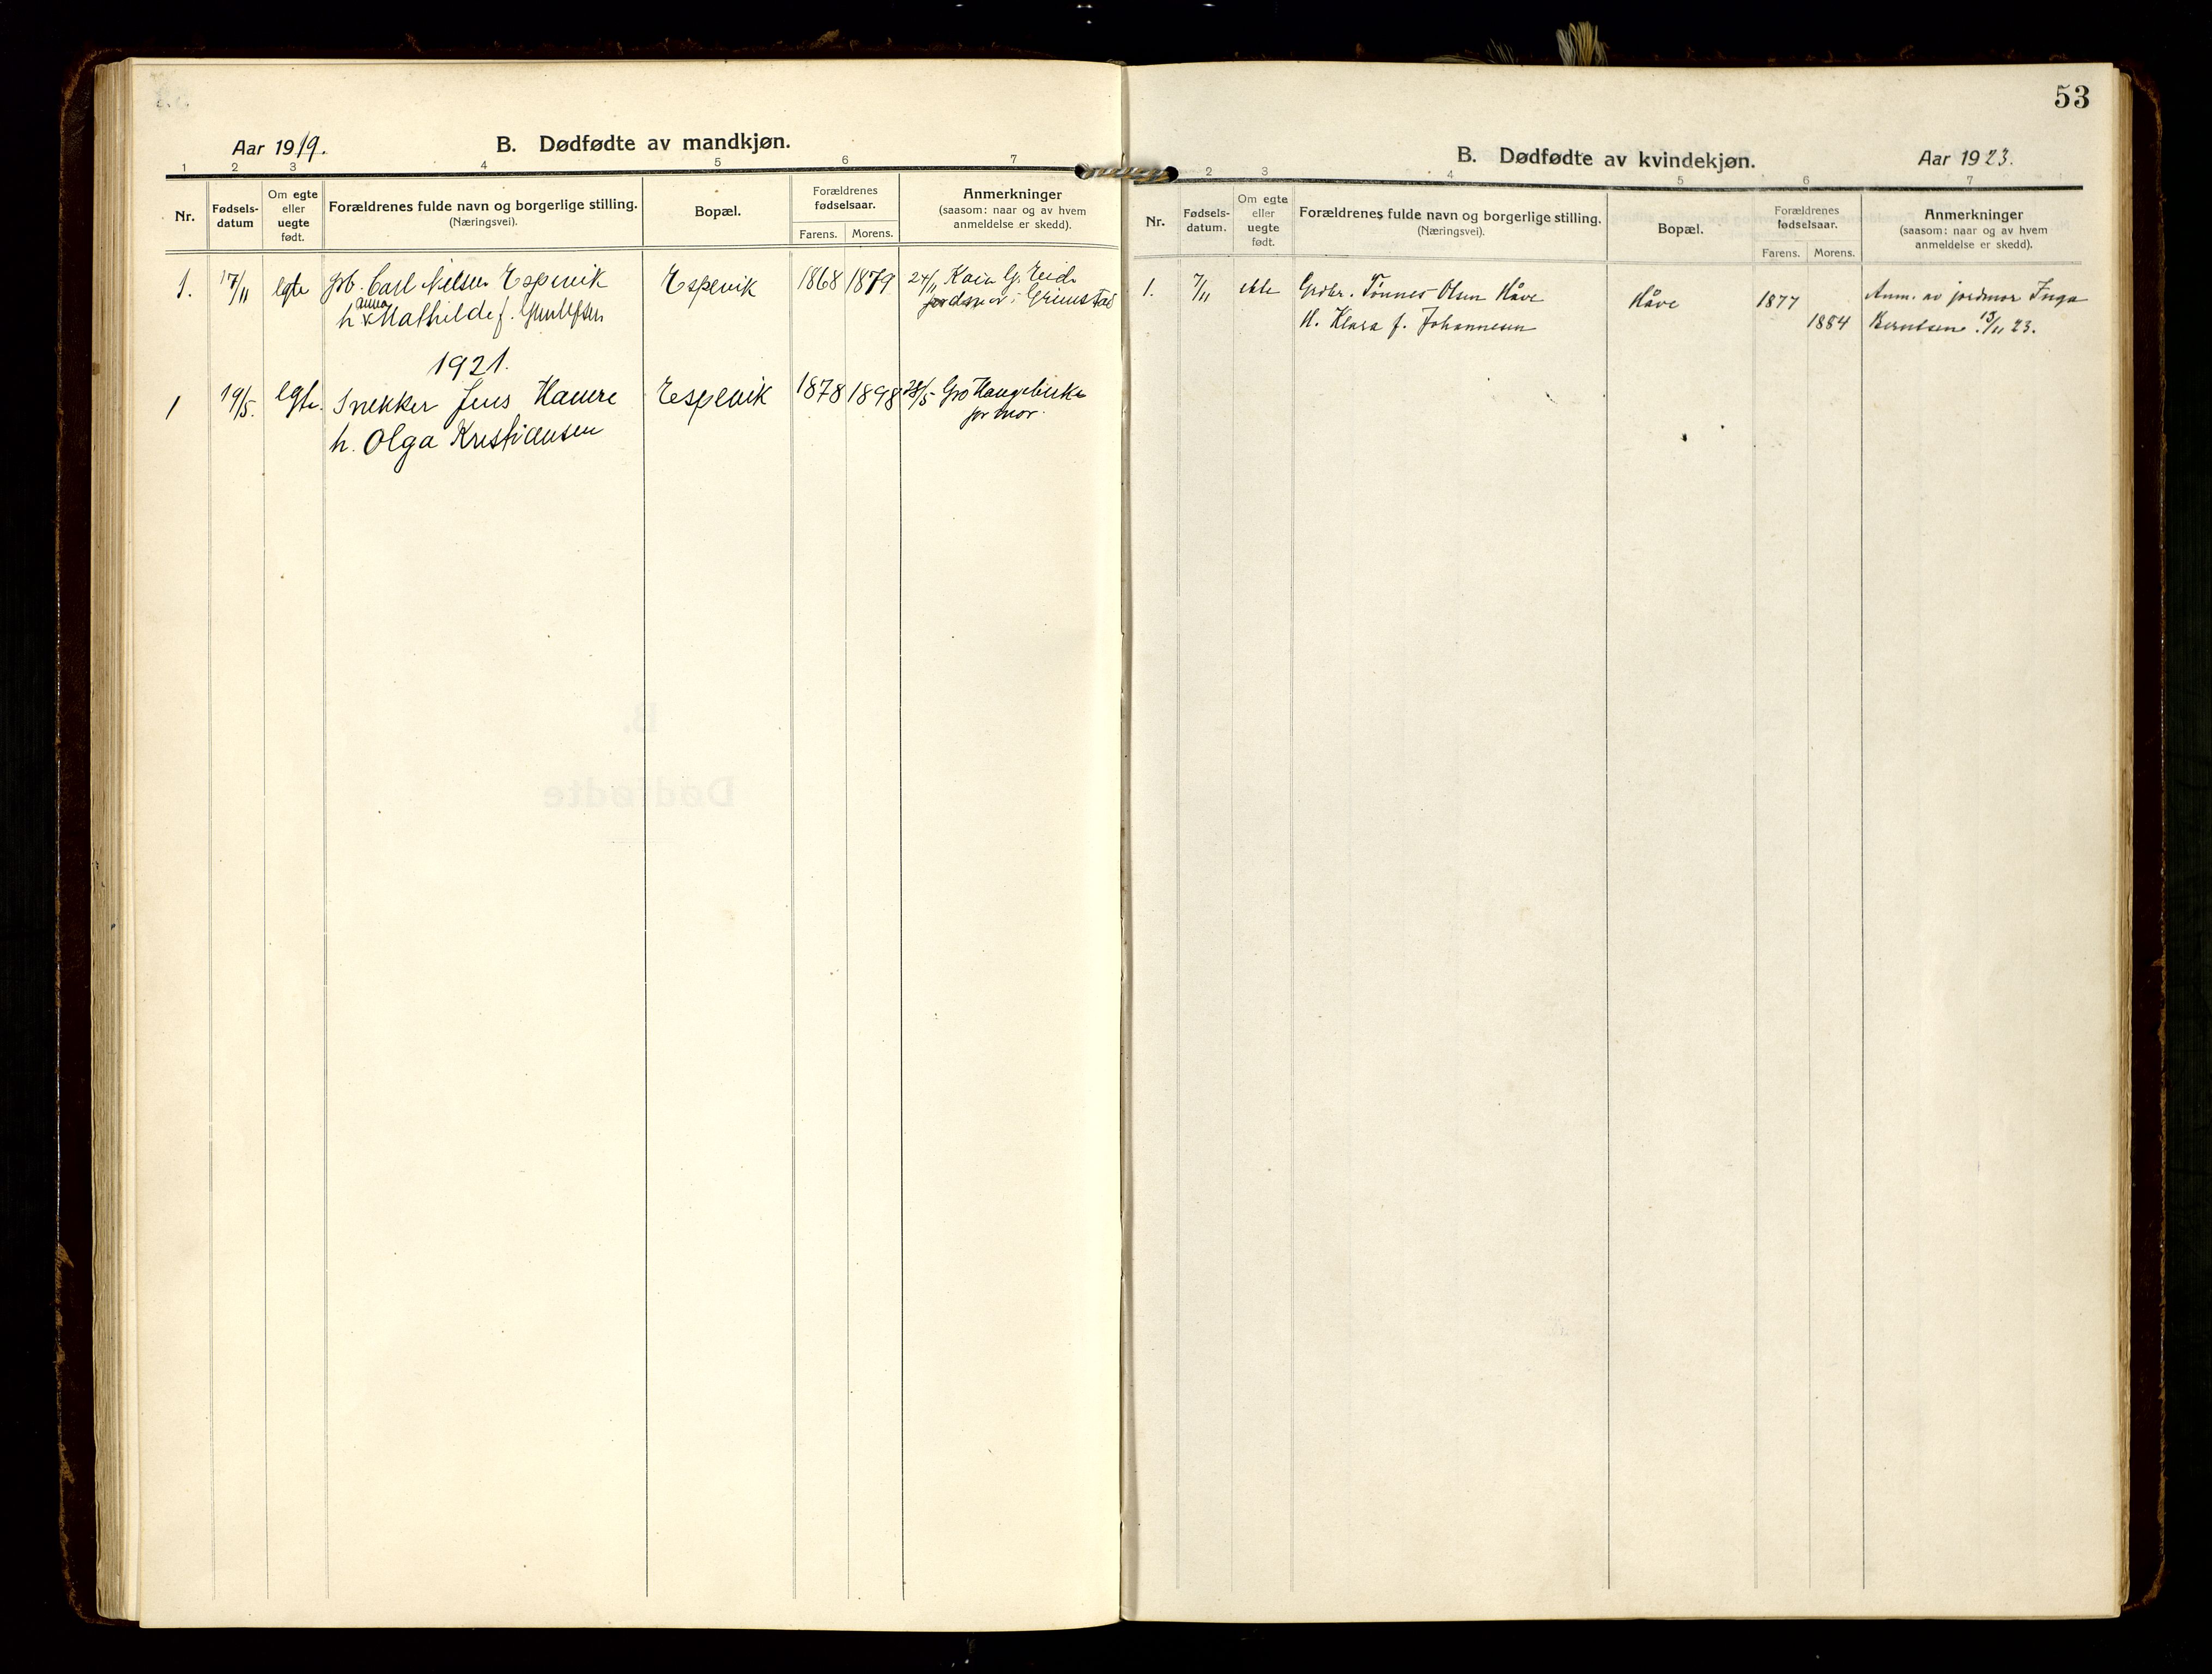 Aar 1919.
B. Dødfødte av mandkjøn.
1 2 3 4 5 6 7
Nr.
Fødsels-
datum
Om egte
eller
uegte
født.
Forældrenes fulde navn og borgerlige stilling.
(Næringsvei).
Bopæl.
Forældrenes
fødselsaar.
Farens. Morens.
Anmerkninger
(saasom: naar og av hvem
anmeldelse er skedd).
1. 17/11 egte Carl Nielsen Espevik Espevik 1868 1879 24/11
anna
h Mathilde f. jordmor i Grimstad
1921.
1 19/5. egte Snekker Jens Haure Espevik 1878 1898 28/5 Gro
jormor.
h. Olga Kristiansen
53
B. Dødfødte av kvindekjøn.
Aar 1923.
2 3 4 5 6 7
Nr.
Fødsels-
datum.
Om egte
eller
uegte
født.
Forældrenes fulde navn og borgerlige stilling.
(Næringsvei).
Bopæl.
Forældrenes
fødselsaar.
Farens. Morens.
Anmerkninger
(saasom: naar og av hvem
anmeldelse er skedd).
1. 7/11 ekte Grdbr. Tønnes Olsen Håve Håve 1877 Anm. av jordmor Inga
H. Klara f. Johannesen 1884 Berntsen 13/11 23.